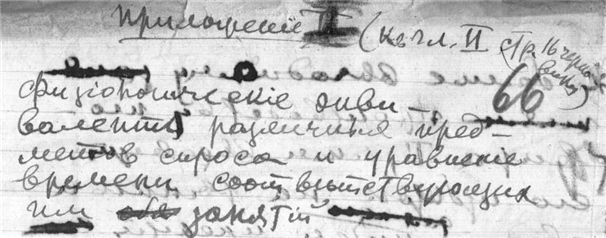 Приложеніе II (къ гл. II стр. 16 черновика)
66
Физіономическіе экви-
валенты различныя пред-
метовъ спроса и уравненіе
времени соотвѣтствующихъ
имъ занятій